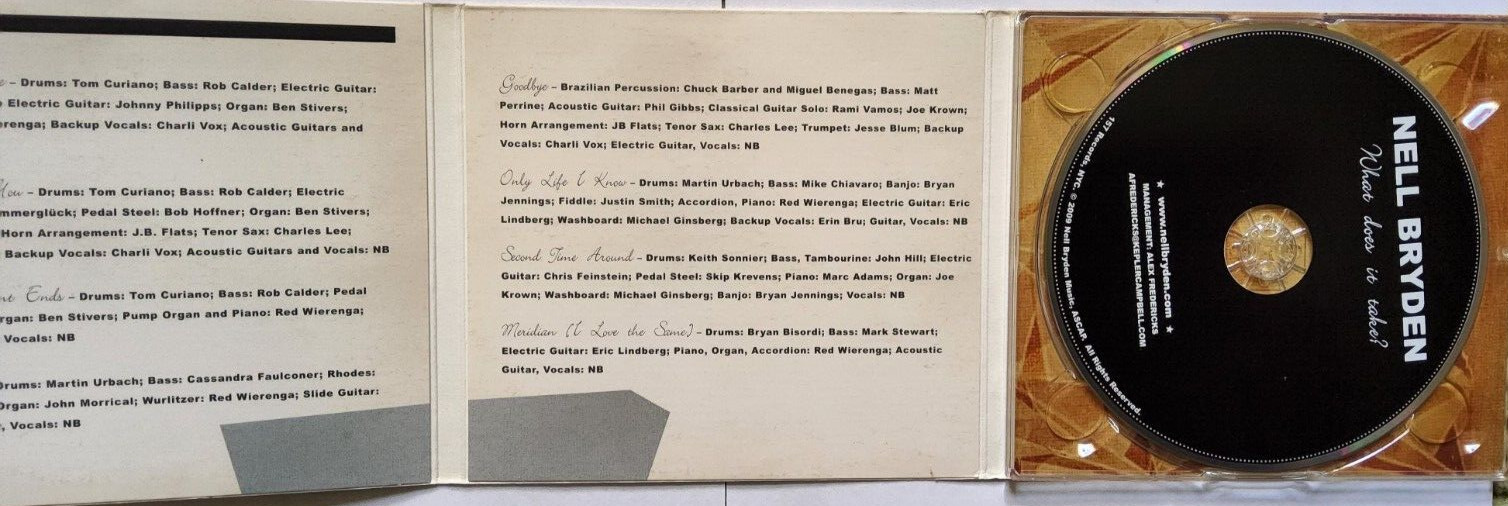 – Drums: Tom Curiano; Bass: Rob Calder; Electric Guitar:
Electric Guitar: Johnny Philipps; Organ: Ben Stivers;
Backup Vocals: Charli Vox; Acoustic Guitars and
– Drums: Tom Curiano; Bass: Rob Calder; Electric
Pedal Steel: Bob Hoffner; Organ: Ben Stivers;
Horn Arrangement: J.B. Flats; Tenor Sax: Charles Lee;
Backup Vocals: Charli Vox; Acoustic Guitars and Vocals: NB
Ends – Drums: Tom Curiano; Bass: Rob Calder; Pedal
Ben Stivers; Pump Organ and Piano: Red Wierenga;
Vocals: NB
Drums: Martin Urbach; Bass: Cassandra Faulconer; Rhodes:
Organ: John Morrical; Wurlitzer: Red Wierenga; Slide Guitar:
, Vocals: NB
Goodbye – Brazilian Percussion: Chuck Barber and Miguel Benegas; Bass: Matt
Perrine; Acoustic Guitar: Phil Gibbs; Classical Guitar Solo: Rami Vamos; Joe Krown;
Horn Arrangement: JB Flats; Tenor Sax: Charles Lee; Trumpet: Jesse Blum; Backup
Vocals: Charli Vox; Electric Guitar, Vocals: NB
Only Life I Know – Drums: Martin Urbach; Bass: Mike Chiavaro; Banjo: Bryan
Jennings; Fiddle: Justin Smith; Accordion, Piano: Red Wierenga; Electric Guitar: Eric
Lindberg; Washboard: Michael Ginsberg; Backup Vocals: Erin Bru; Guitar, Vocals: NB
Second Time Around – Drums: Keith Sonnier; Bass, Tambourine: John Hill; Electric
Guitar: Chris Feinstein; Pedal Steel: Skip Krevens; Piano: Marc Adams; Organ: Joe
Krown; Washboard: Michael Ginsberg; Banjo: Bryan Jennings; Vocals: NB
Meridian (I Love the Same) – Drums: Bryan Bisordi; Bass: Mark Stewart;
Electric Guitar: Eric Lindberg; Piano, Organ, Accordion: Red Wierenga; Acoustic
Guitar, Vocals: NB
NELL BRYDEN
What does it take?
★ www.nellbryden.com ★
MANAGEMENT: ALEX FREDERICKS
AFREDERICKS@KEPLERCAMPBELL.COM
157 Records, NYC. © 2009 Nell Bryden Music, ASCAP. All Rights Reserved.